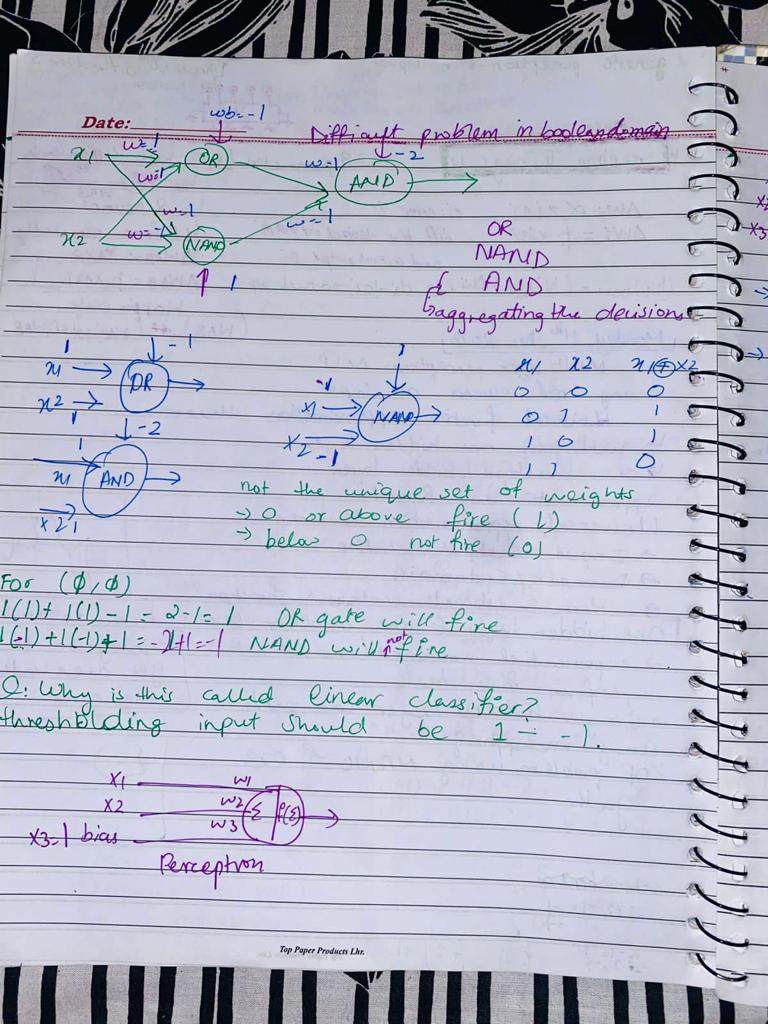 wb=-1
Date:
Difficult problem in boolean domain
x1 w=1 OR w=1 -2
w=1 AND
w=1 w=-1
x2 w=-1 NAND
1
OR
NAND
AND
aggregating the decisions
1 -1 1
x1 OR -1 x1 x2 x1⊕x2
x2 x1 NAND 0 0 0
1 -2 x2 -1 0 1 1
1 1 0 1
x1 AND 1 1 0
x2 1
not the unique set of weights
→ 0 or above fire (1)
→ below 0 not fire (0)
For (∅,∅)
1(1)+ 1(1)-1 = 2-1= 1 OR gate will fire
1(-1)+1(-1)+1=-2+1=-1 NAND will not fire
Q: Why is this called linear classifier?
thresholding input should be 1 -1.
x1 w1
x2 w2 Σ f(Σ)
x3=1 bias w3
Perceptron
Top Paper Products Lhr.